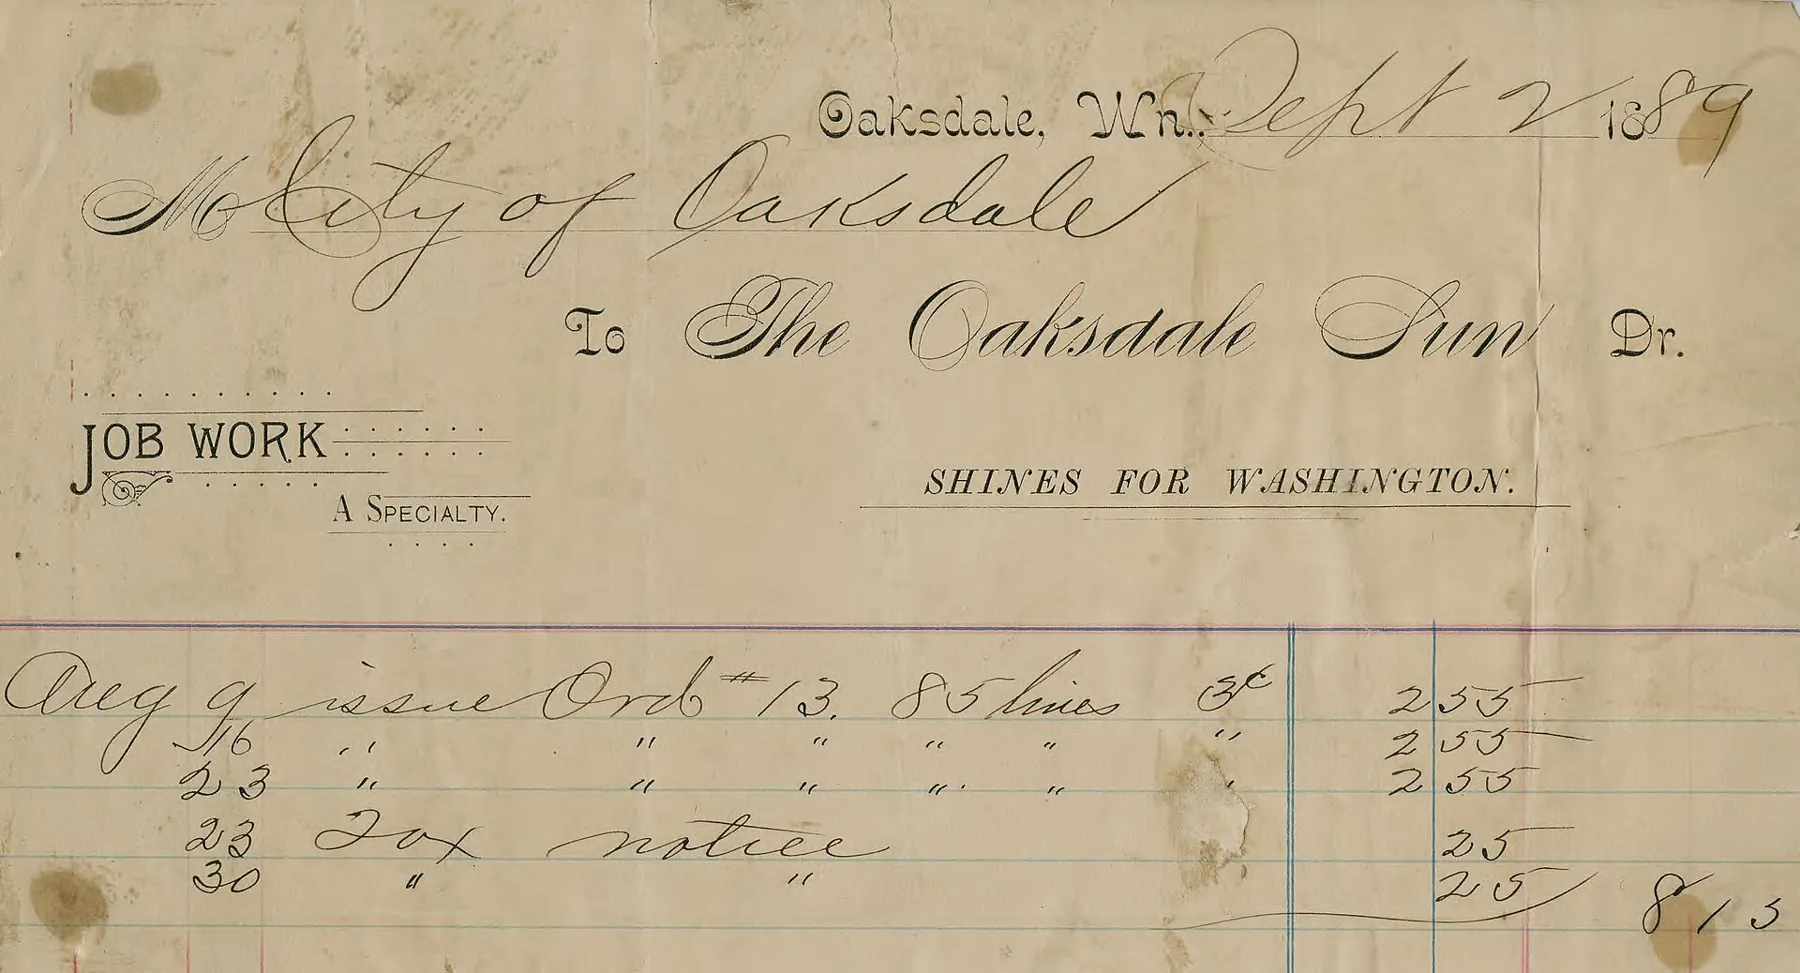 Oaksdale, Wn., Sept 2 1889
M City of Oaksdale
To The Oaksdale Sun Dr.
JOB WORK
A SPECIALTY.
SHINES FOR WASHINGTON.
Aug 9 issue Ord # 13. 85 lines 3¢ 2 55
16 " " " " " " 2 55
23 " " " " " " 2 55
23 Tax notice 25
30 " " 25 8 15